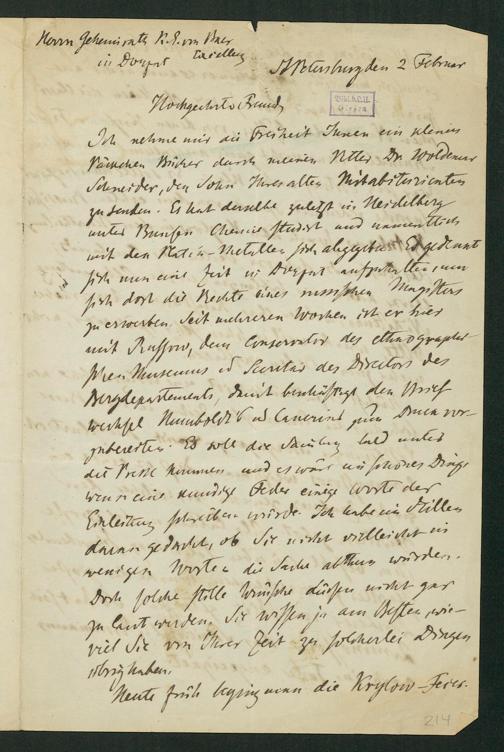 Herrn Geheimrath K. E. von Baer
in Dorpat
St Petersburg den 2 Februar
Hochgeehrter Freund,
Ich nehme mir die Freiheit Ihnen ein kleines
Päckchen Bücher durch meinen Vetter Dr. Woldemar
Schneider, den Sohn Ihres alten Mitabiturienten
zu senden. Es hat derselbe zuletzt in Heidelberg
unter Bunsen Chemie studirt und namentlich
mit den Platin-Metallen sich abgegeben. Er gedenkt
sich nun eine Zeit in Dorpat aufzuhalten um
sich dort die Rechte eines russischen Magisters
zu erwerben. Seit mehreren Wochen ist er hier
mit Russow, dem Conservator des ethnographi-
schen Museums und Secretär des Directors des
Bergdepartements, damit beschäftigt den Brief-
wechsel Humboldt's und Cancrins zum Druck vor-
zubereiten. Es soll die Sammlung bald unter
die Presse kommen und es wäre ein schönes Ding
wenn eine kundige Feder einige Worte der
Einleitung schreiben würde. Ich habe im Stillen
daran gedacht, ob Sie nicht vielleicht in
wenigen Worten die Sache abthun würden.
Doch solche stille Wünsche dürfen nicht gar
zu laut werden. Sie wissen ja am Besten, wie-
viel Sie von Ihrer Zeit zu solcherlei Dingen
übrig haben.
Heute früh beging man die Krylow-Feier.
214